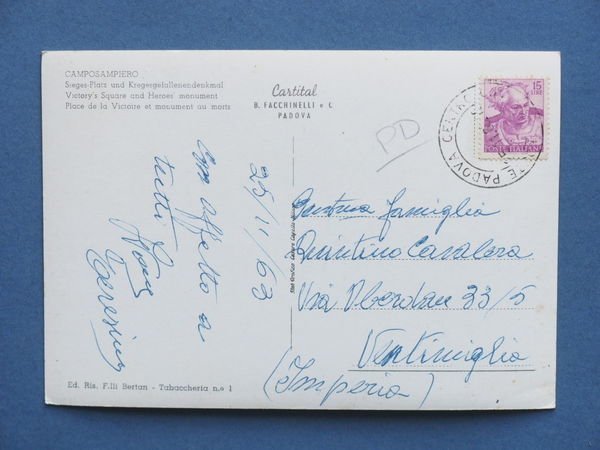 CAMPOSAMPIERO
Sieges-Platz und Kregergefallenendenkmal
Victory's Square and Heroes' monument
Place de la Victoire et monument au morts
Cartital
B. FACCHINELLI e C.
PADOVA
15
LIRE
POSTE ITALIANE
PADOVA CENTRO
PD
25/11/63
Con affetto a
tutti
Teresina
famiglia
Quintino Cavalera
Via Oberdan 33/5
Ventimiglia
(Imperia)
Ed. Ris. F.lli Bertan - Tabaccheria n.o 1